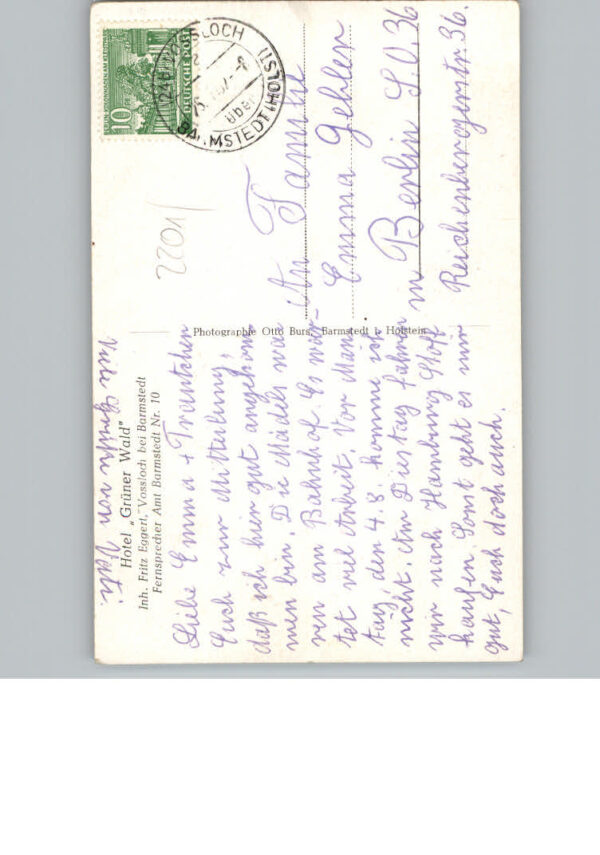 Hotel „Grüner Wald"
Inh. Fritz Eggert, Vossloch bei Barmstedt
Fernsprecher Amt Barmstedt Nr. 10
Liebe Emma + Trautchen
Euch zur Mitteilung,
daß ich hier gut angekom-
men bin. Die Mädels wa-
ren am Bahnhof. Es war-
tet viel Arbeit. Vor Mon
tag, den 4.8. komme ich
nicht. Am Dienstag fahren
wir nach Hamburg Stoff
kaufen. Sonst geht es mir
gut, Euch doch auch.
Viele Grüße von Vati.
Photographie Otto Burs, Barmstedt i. Holstein
2201
DEUTSCHE POST
10
VOSSLOCH
BARMSTEDT (HOLST)
An Familie
Emma Gehler
in Berlin S.O. 36
Reichenbergerstr. 36.